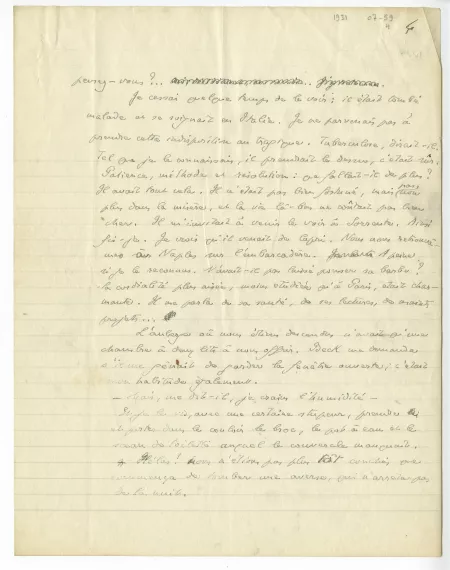 1931 07-59
4
pensez-vous ?..
Je cessai quelque temps de le voir ; il était tombé
malade et se soignait en Italie. Je ne parvenais pas à
prendre cette indisposition au tragique. Tuberculose, disait-il.
Tel que je le connaissais, il prendrait le dessus, c'était sûr.
Patience, méthode et résolution : que fallait-il de plus ?
Il avait tout cela. Il n'était pas bien fortuné, mais non
plus dans la misère, et la vie là-bas ne coûtait pas bien
cher. Il m'invitait à venir le voir à Sorrente. Ainsi
fis-je. Je crois qu'il venait de Capri. Nous nous retrouvâ-
mes à Naples sur l'embarcadère. A peine
si je le reconnus. N'avait-il pas laissé pousser sa barbe ?
Sa cordialité plus aisée, moins étudiée qu'à Paris, était char-
mante. Il me parla de sa santé, de ses lectures, de
projets...
L'auberge où nous étions descendus n'avait qu'une
chambre à deux lits à nous offrir. Beck me demanda
s'il me gênait de garder la fenêtre ouverte ; c'était
mon habitude également.
— Mais, me dit-il, je crains l'humidité —
je le vis, avec une certaine stupeur, prendre
dans le couloir le broc, le pot à eau et le
seau de toilette auquel le couvercle manquait.
Hélas ! Nous n'étions pas plus tôt couchés que
commença de tomber une averse, qui n'arrêta pas
de la nuit.